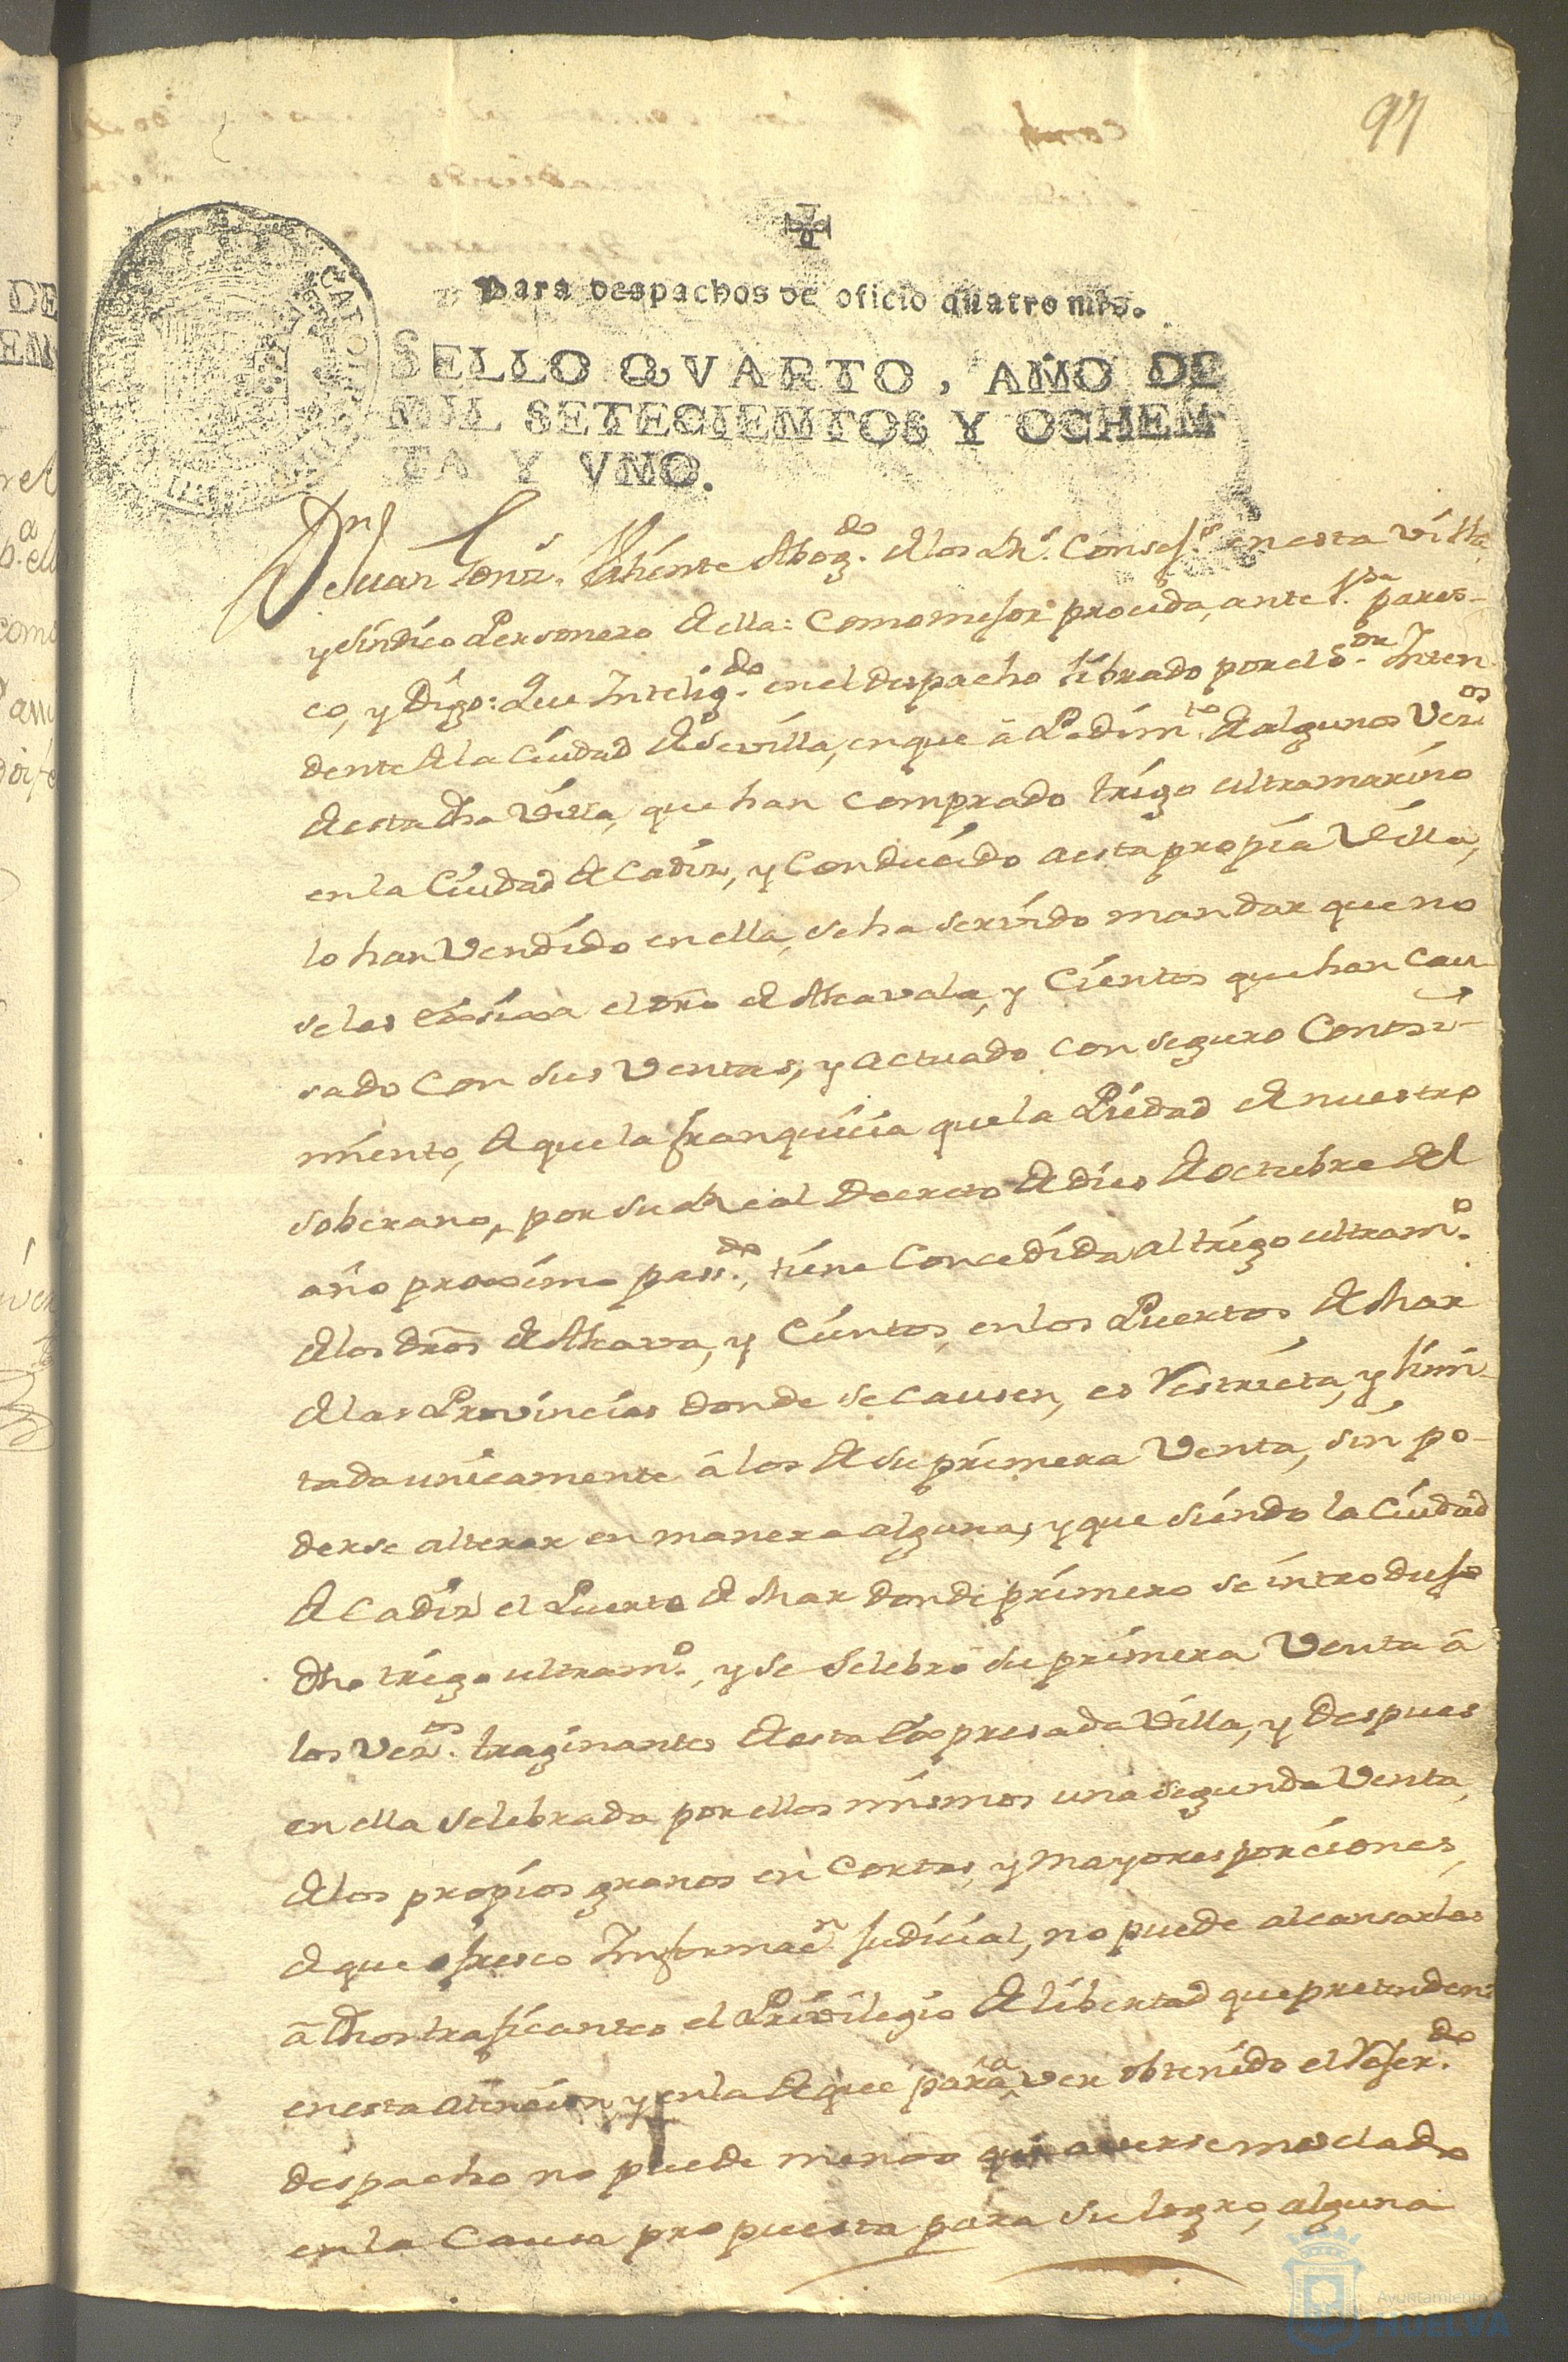 97
Para despachos de oficio quatro mrs.
SELLO QVARTO, AÑO DE
MIL SETECIENTOS Y OCHEN
TA Y VNO.
Dn Juan Abogdo. de los Rs. Consejs. en esta Villa
y Sindico Personero de ella: Como mejor proceda, ante Vsa. pares-
co, y Digo: Que Inteligdo. en el despacho librado por el Sor. Inten
dente de la Ciudad de Sevilla, en que â Pedimto. de algunos Veznos
de esta dha Villa, que han comprado trigo ultramarino
en la Ciudad de Cadiz, y conducido a esta propia Villa,
lo han Vendido en ella, se ha servido mandar que no
se les exsixa el dro de Alcavala, y Cientos que han cau
sado con sus Ventas, y actuado con seguro Consi-
miento, de que la franquicia que la Piedad de nuestro
soberano, por su Real Decreto de dies de octubre del
año proximo passdo., tiene Concedida al trigo ultramo.
de los dros de Alcava, y Cientos, en los Puertos de Mar
de las Provincias donde se causen, es Restricta, y limi-
tada unicamente â los de su primera Venta, sin po-
derse alterar en manera alguna; y que siendo la Ciudad
de Cadiz el Puerto de Mar donde primero se introdujo
dho trigo ultramo., y se selebrò su primera Venta â
los Vezos. traginantes de esta Expresada Villa, y despues
en ella selebrada por ellos mismos una segunda Venta,
de los propios granos en cortas, y mayores porciones,
de que ofresco Informacn Judicial, no puede alcansarles
â dhos traficantes el Privilegio de libertad que pretenden:
en esta atencion, y en la de que para aver obtenido el Referdo.
despacho no puede menos que averse mesclado
en la Causa propuesta para su logro, alguna
Ayuntamiento
HUELVA